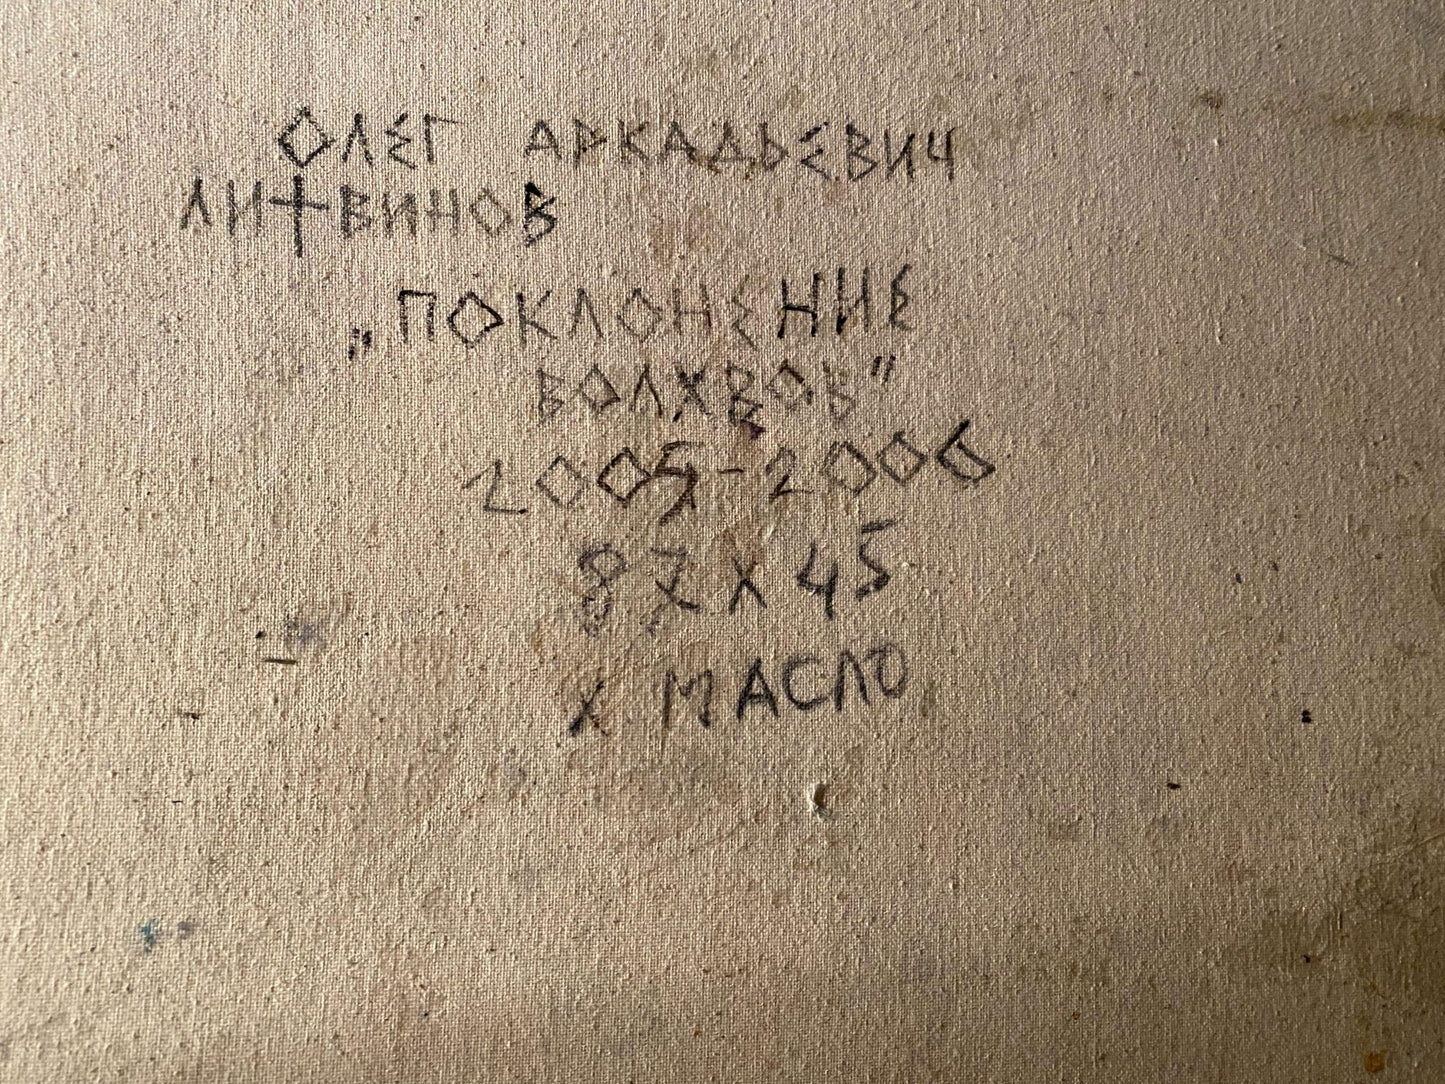 ОЛЕГ АРКАДЬЕВИЧ
ЛИТВИНОВ
„ПОКЛОНЕНИЕ
ВОЛХВОВ"
2005-2006
87 х 45
х МАСЛО